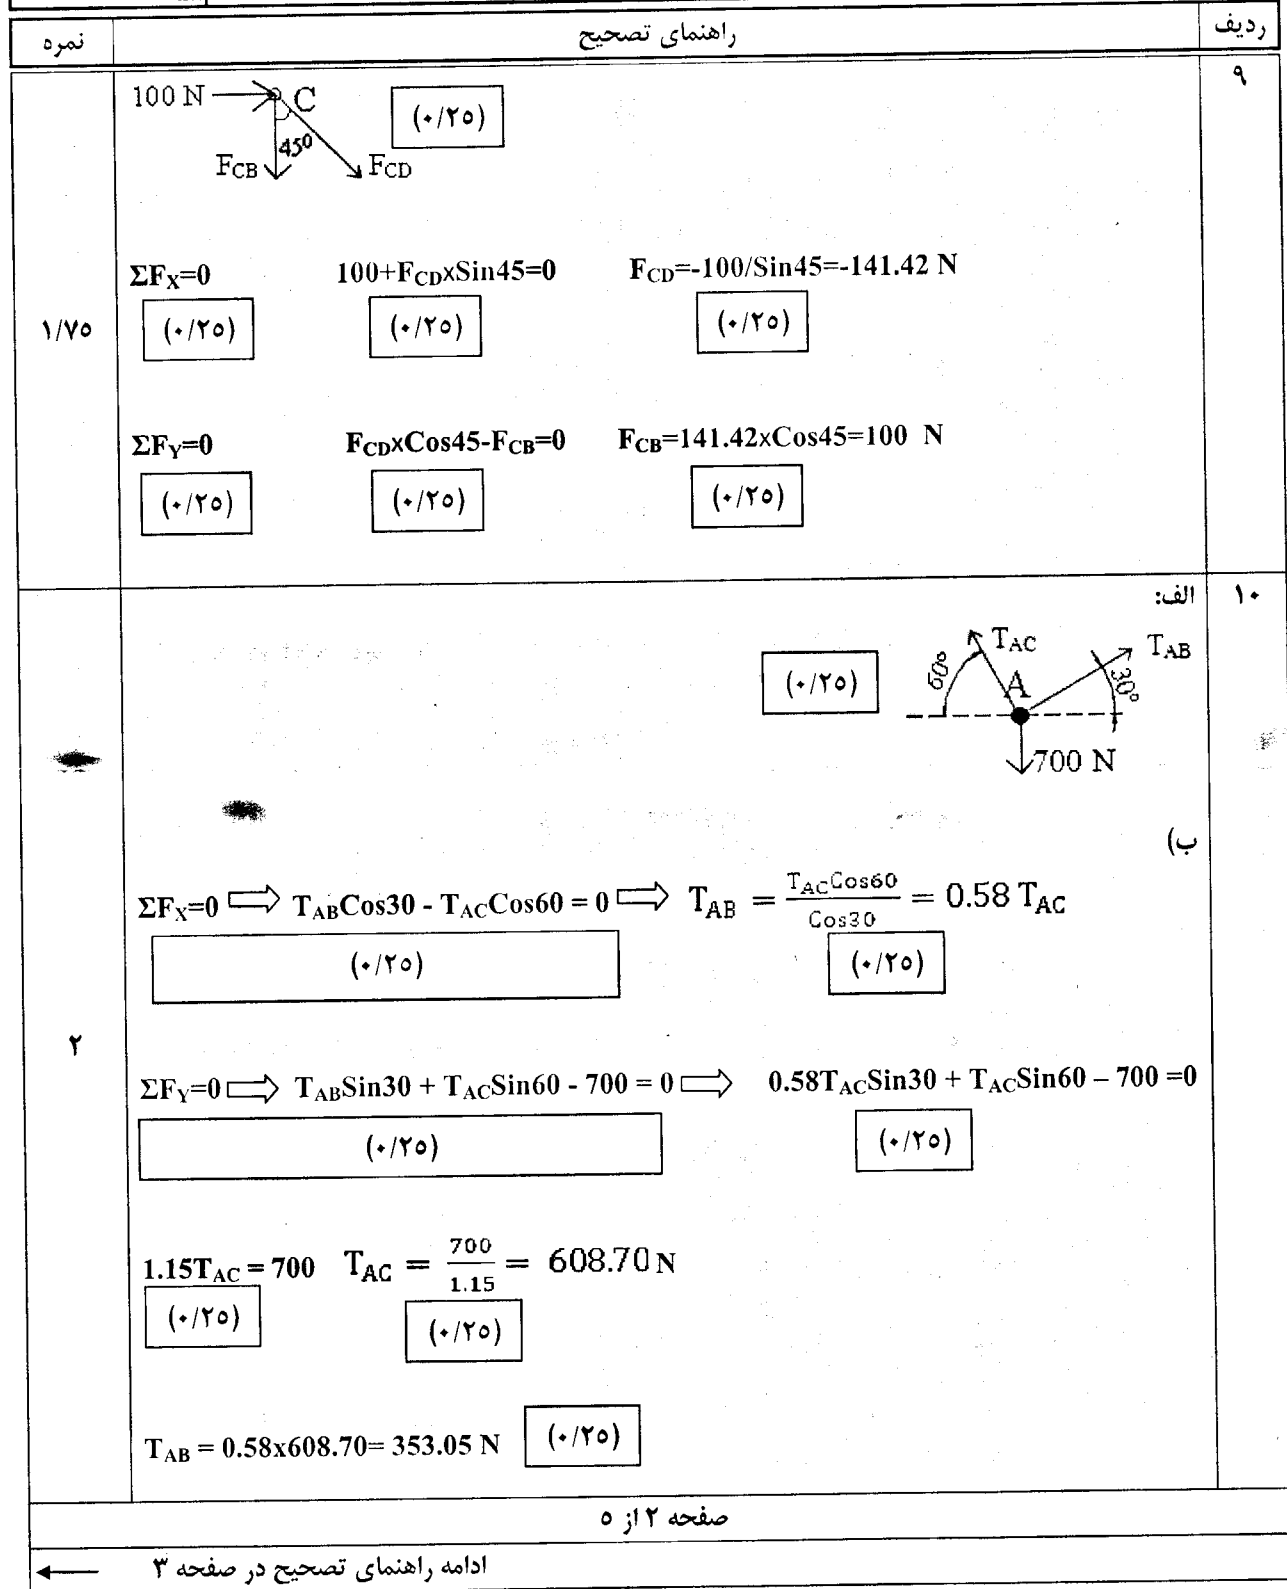 ردیف راهنمای تصحیح نمره
۹
100 N C (۰/۲۵)
45⁰
F_CB F_CD
ΣF_X=0 100+F_CDxSin45=0 F_CD=-100/Sin45=-141.42 N
(۰/۲۵) (۰/۲۵) (۰/۲۵)
۱/۷۵
ΣF_Y=0 F_CDxCos45-F_CB=0 F_CB=141.42xCos45=100 N
(۰/۲۵) (۰/۲۵) (۰/۲۵)
۱۰
الف:
T_AC T_AB
60° A 30°
(۰/۲۵)
700 N
ب)
ΣF_X=0 ⇒ T_ABCos30 - T_ACCos60 = 0 ⇒ T_AB = T_ACCos60/Cos30 = 0.58 T_AC
(۰/۲۵) (۰/۲۵)
۲
ΣF_Y=0 ⇒ T_ABSin30 + T_ACSin60 - 700 = 0 ⇒ 0.58T_ACSin30 + T_ACSin60 – 700 =0
(۰/۲۵) (۰/۲۵)
1.15T_AC = 700 T_AC = 700/1.15 = 608.70 N
(۰/۲۵) (۰/۲۵)
T_AB = 0.58x608.70= 353.05 N (۰/۲۵)
صفحه ۲ از ۵
ادامه راهنمای تصحیح در صفحه ۳ ←